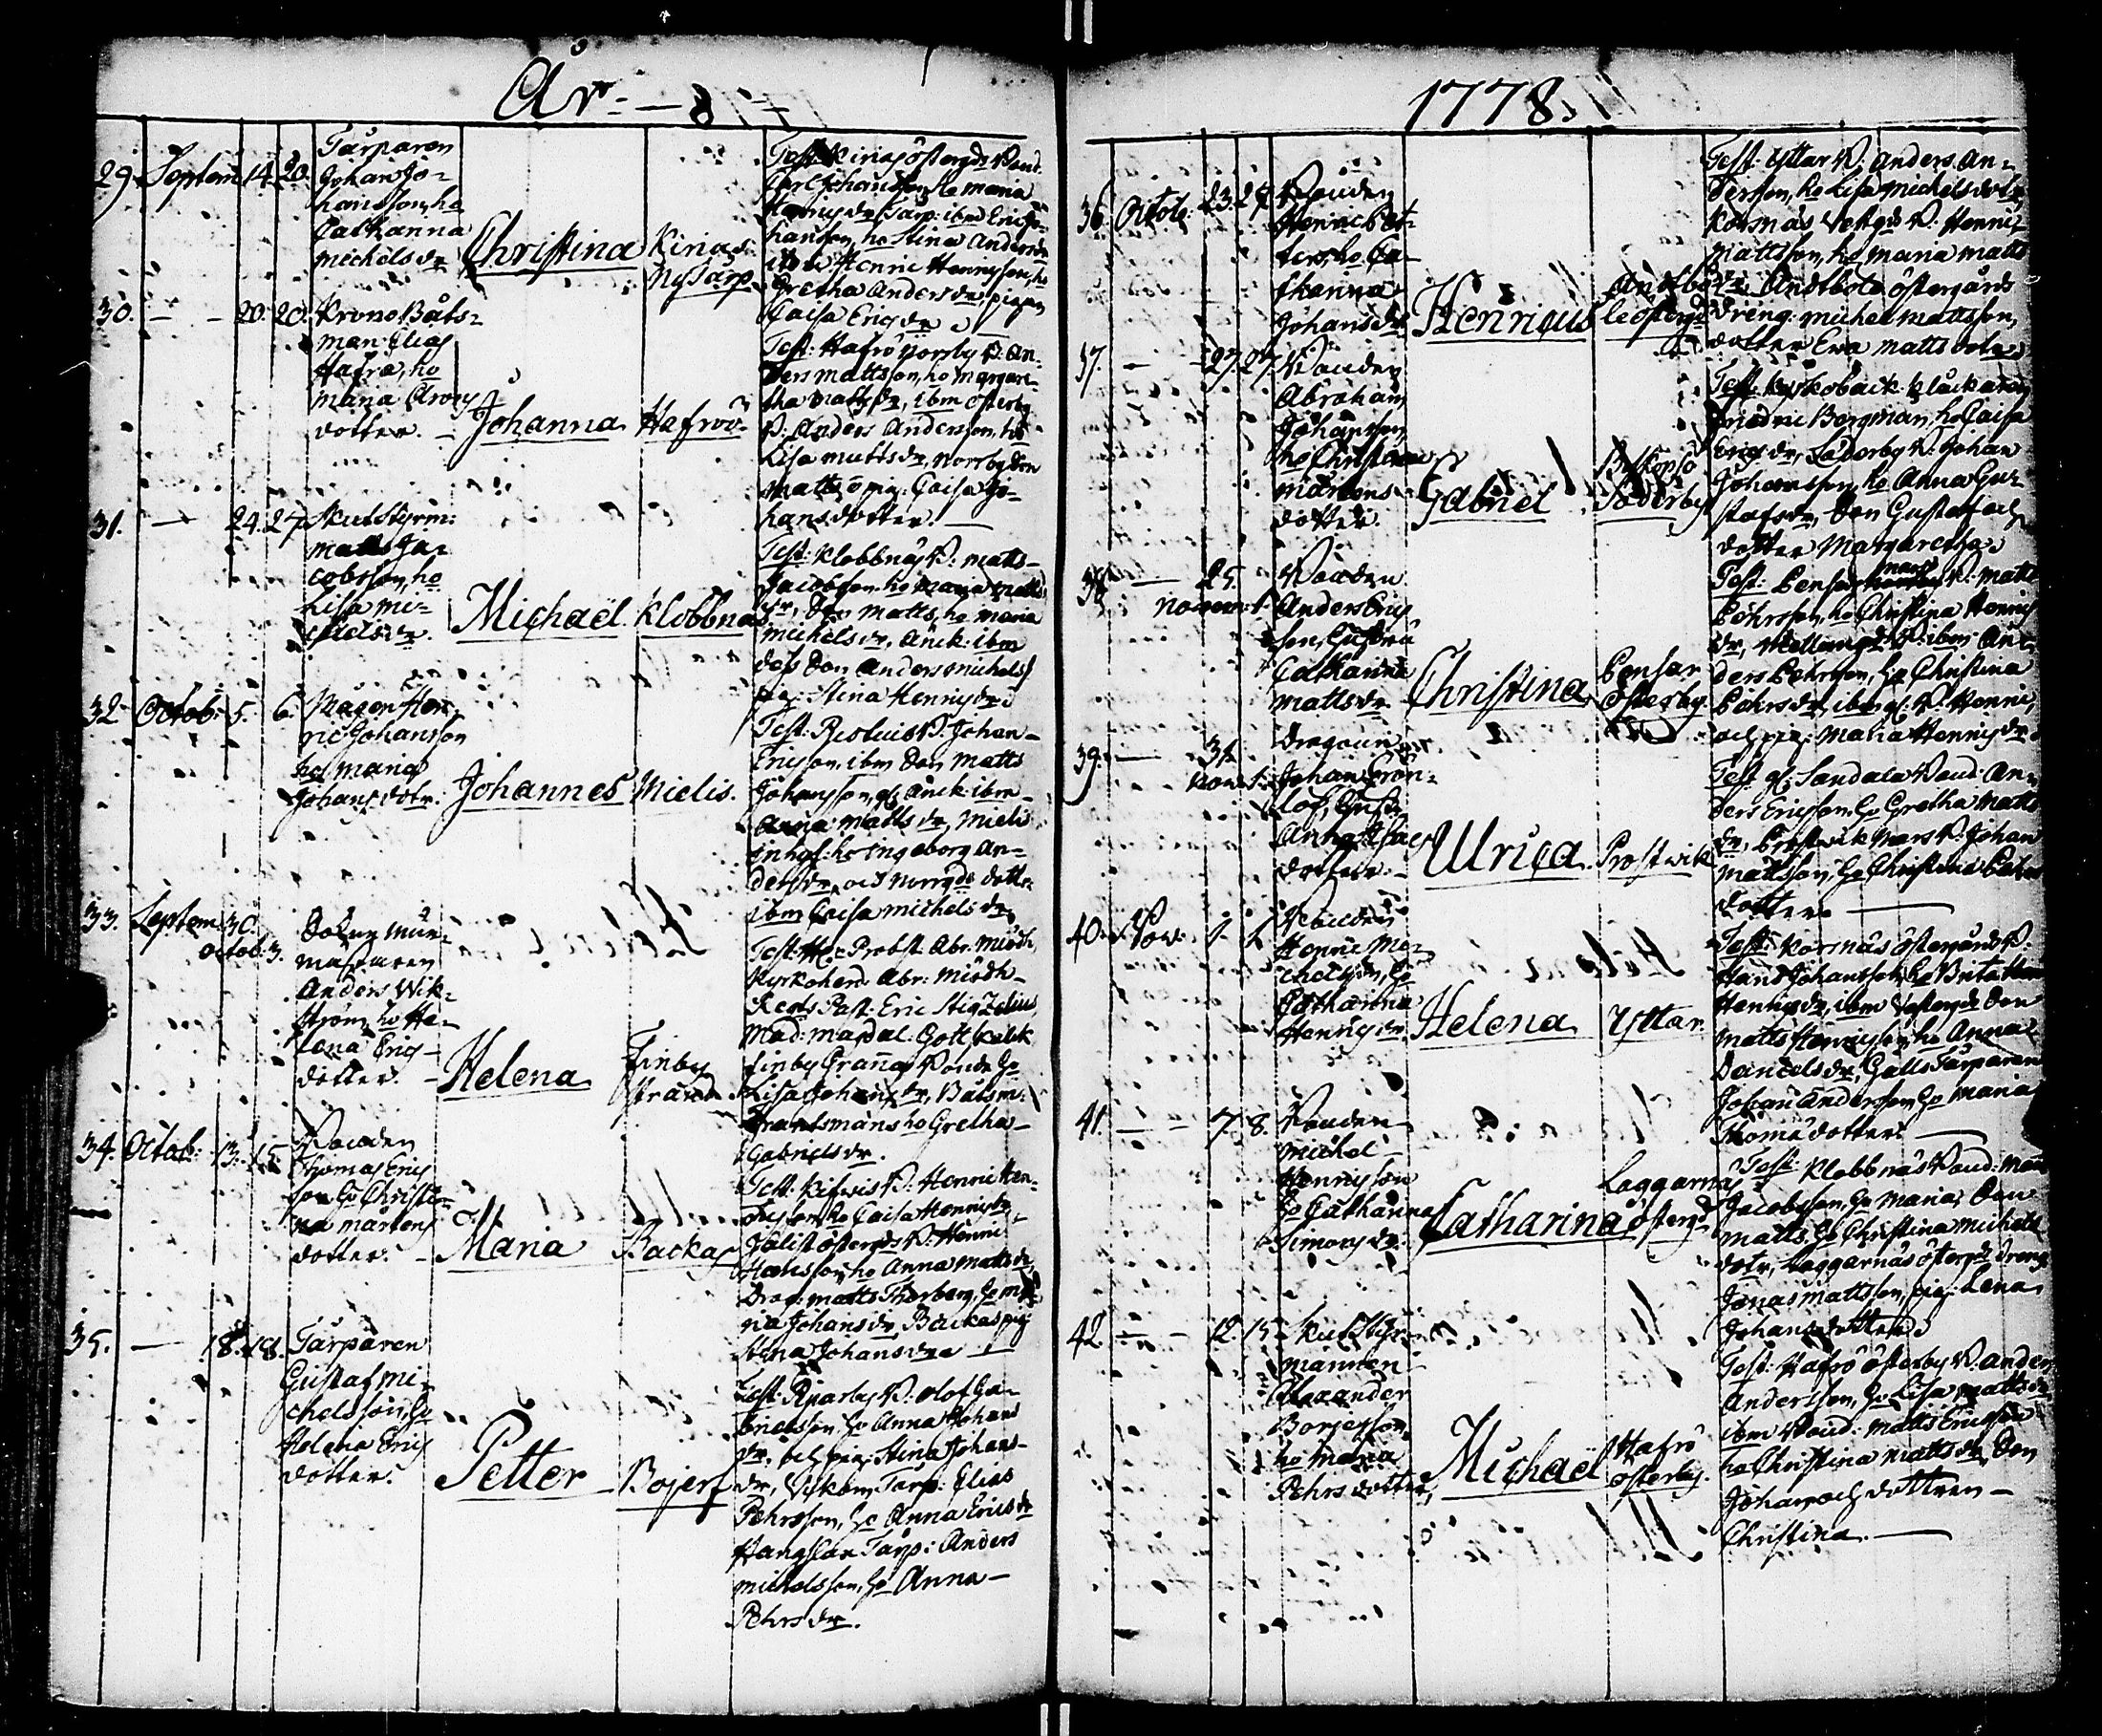 År
29. Septem: 14. 20.
Tårparen
Johan Jo-
hansson, ho
Catharina
Michelsdr
Christina
Kirias
Nytårp
Test: Kirias östergds Bond:
Carl Johansson, ho Maria
Henricsdr, Tårp: ibm Eric Jo-
hansson, ho Stina Andersdr
Henric Henricsson, ho
Gretha Andersdr, pigan
Caisa Ericsdr
30. — 20. 20.
Krono Båts-
man Elias
Hafra, ho
Maria
dotter.
Johanna
Hafrö
Test: Hafrö Norrby B: An-
ders Mattsson, ho Margare-
tha Mattsdr, ibm österby
B: Anders Andersson, ho
Lisa Mattsdr, Norrby Son
Matts, pig: Caisa Jo-
hansdotter. —
31. — 24. 27.
Skut Styrm:
Matts Ja-
cobsson, ho
Lisa Mi-
chelsdr
Michaël
Klobbnäs
Test: Klobbnäs B: Matts
Jacobsson, ho Maria Matts
dr, Son Matts, ho Maria
Michelsdr, Änck: ibm
Son Anders Michels
pig: Stina Henricsdr
32. Octob: 5. 6.
Mågen Hen-
ric Johansson
ho Maria
Johansdotr.
Johannes
Mielis.
Johan
Ericsson, ibm Son Matts
Johansson, Änck: ibm
Anna Mattsdr, Mielis
inhys: ho Ingeborg An-
dersdr, och dotter
ibm Caisa Michelsdr
33. Septem: 30.
Octob: 3.
Mur-
mästaren
Anders Wik-
ström, ho He-
lena Erics-
dotter.
Helena
Finby
strand
Test: Hr Probst. Abr: Miödh,
Kyrkoherd. Abr: Miödh
Past: Eric Stigzelius,
Mad: Magdal: Gottskalk
Finby Grannas Bonde ho
Lisa Johansdr, Båtsm:
Frantsmans ho Gretha
Gabrielsdr.
34. Octob: 13. 15.
Bonden
Thomas Erics
son, ho Christi-
na Mårtens
dotter.
Maria
Backas
Test: B: Henric Hen-
ricsson, ho Caisa Henricsdr,
östergds B: Henric
ho Anna Mattsdr,
Drag: Matts Thorberg, ho Ma-
ria Johansdr, Backas pig:
Stina Johansdr
35. — 18. 18.
Tårparen
Gustaf Mi-
chelsson, ho
Helena Erics
dotter.
Petter
Böjers
Test: B: Olof Ga-
brielsson, ho Anna Johans
dr, och pig: Stina Johans-
dr, Tårp: Elias
Pehrsson, ho Anna Ericsdr
Hangslax Tårp: Anders
Michelsson, ho Anna
Pehrsdr.
1778.
36. Octob: 23. 24.
Bonden
Henric Pet-
ters, ho Ca-
tharina
Johansdr
Henricus
Andtböle
östergd
Test: Yttar B: Anders An-
dersson, ho Lisa Michelsdotr,
Korsnäs Vestgds B: Henric
Mattsson, ho Maria Matts
dr, Andtböle östergårds
dreng Michel Mattsson,
dotter Ewa Mattsdotr
37. — 27. 27.
Bonden
Abraham
Johansson,
ho Christina
Mårtens
dotter.
Gabriel
Biskopsö
Söderby
Test: Kyrkoback: Klåckaren
Fredric Bergman, ho Caisa
Ericsdr, Söderby B: Johan
Johansson, ho Anna Gu-
stafsdr, Son Gustaf och
dotter Margaretha
38. — 25.
Novem: 1.
Bonden
Anders Erics
son, Hustru
Catharina
Mattsdr
Christina
Pensar
österby
Test: Pensar B: Matts
Pehrsson, ho Christina Henrics
dr, Mellangds B: ibm An-
ders Pehrsson, ho Christina
Pehrsdr, ibm B: Henric
och pig: Maria Henricsdr
39. — 31.
Nov: 1.
Dragoun
Johan Grön-
lof, Hustr
Anna Isac
dotter.
Ulrica
Prostvik
Test: Sandala Bond: An-
ders Ericsson, ho Gretha Matts
dr, Prostvik B: Johan
Mattsson, ho Christina Pehrs
dotter. —
40. Nov: 1. 1.
Bonden
Henric Mi-
chelsson, ho
Catharina
Henricsdr
Helena
Yttar.
Test: Korsnäs östergårds B:
Hans Johansson, ho Brita
Henricsdr, ibm Vestergds Son
Matts Henricsson, ho Anna
Danielsdr, Galts Tårparen
Johan Andersson, ho Maria
Thomædotter. —
41. — 7. 8.
Bonden
Michel
Henricsson
ho Catharina
Simonsdr
Catharina
Laggarnäs
östergd
Test: Klobbnäs Bond: Matts
Jacobsson, ho Maria, Son
Matts, ho Christina Michels
dotr, Laggarnäs östergds dreng
Jonas Mattsson, pig: Lena
Johansdotter
42. — 12. 15.
Skut Styr-
mannen
Alexander
Börjesson,
ho Maria
Pehrsdotter,
Michaël
Hafrö
österby.
Test: Hafrö österby B: Anders
Andersson, ho Lisa Mattsdr
ibm Bond: Matts Ericsson
ho Christina Mattsdr, Son
Johan och dottren —
Christina. —